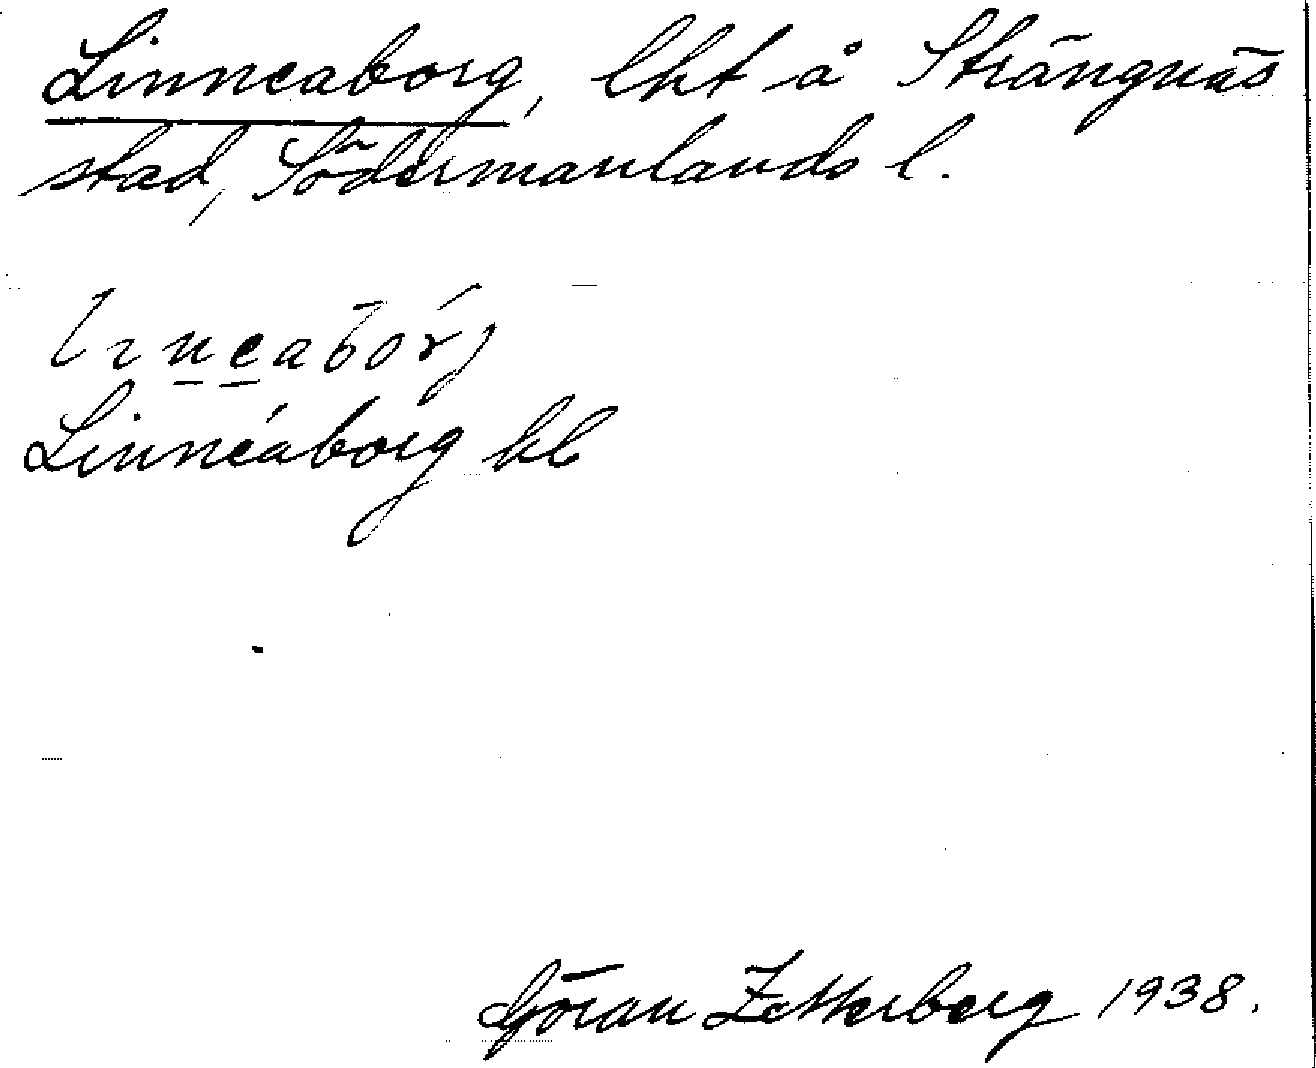 Linneaborg, lht å Strängnäs
stad, Södermanlands l.
Linnéaborg kb
Göran Zetterberg 1938.